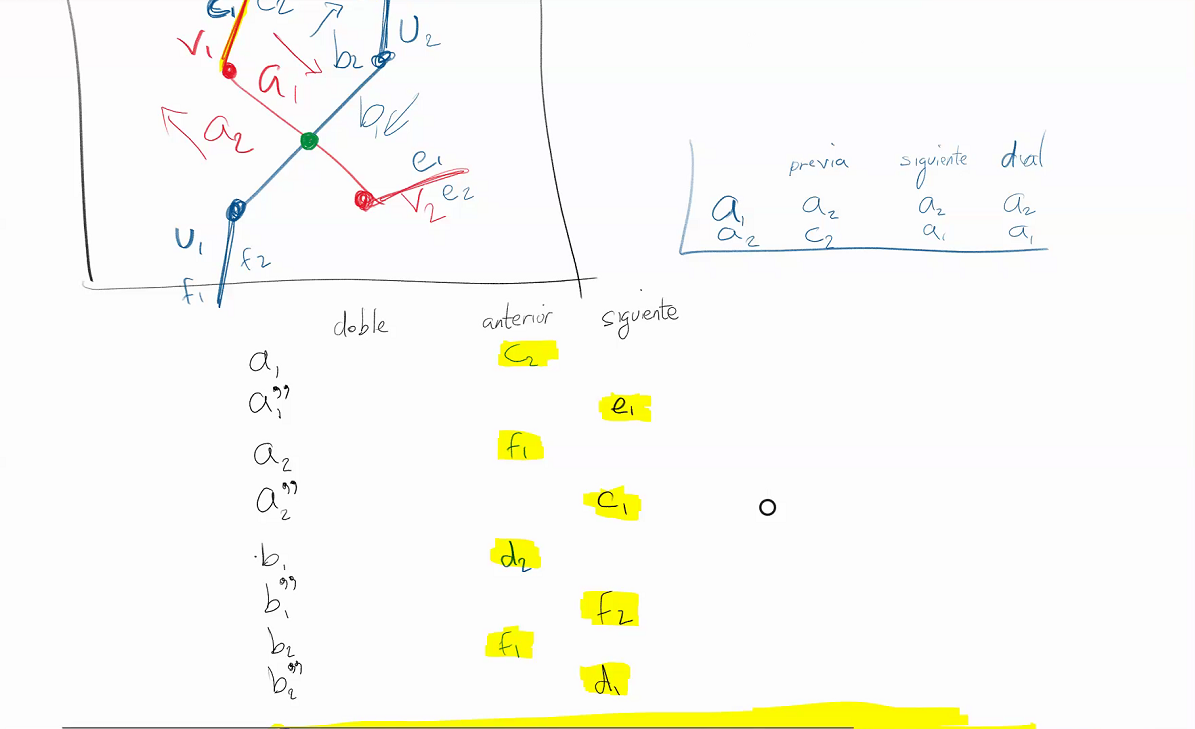 c₁ c₂
v₁
a₁
b₂
U₂
a₂
b₁
e₁
e₂
v₂
U₁
f₂
f₁
previa siguiente dual
a₁ a₂ a₂ a₂
a₂ c₂ a₁ a₁
doble anterior siguiente
a₁ c₂
a₁'' e₁
a₂ f₁
a₂'' c₁
b₁ d₂
b₁'' f₂
b₂ f₁
b₂'' d₁